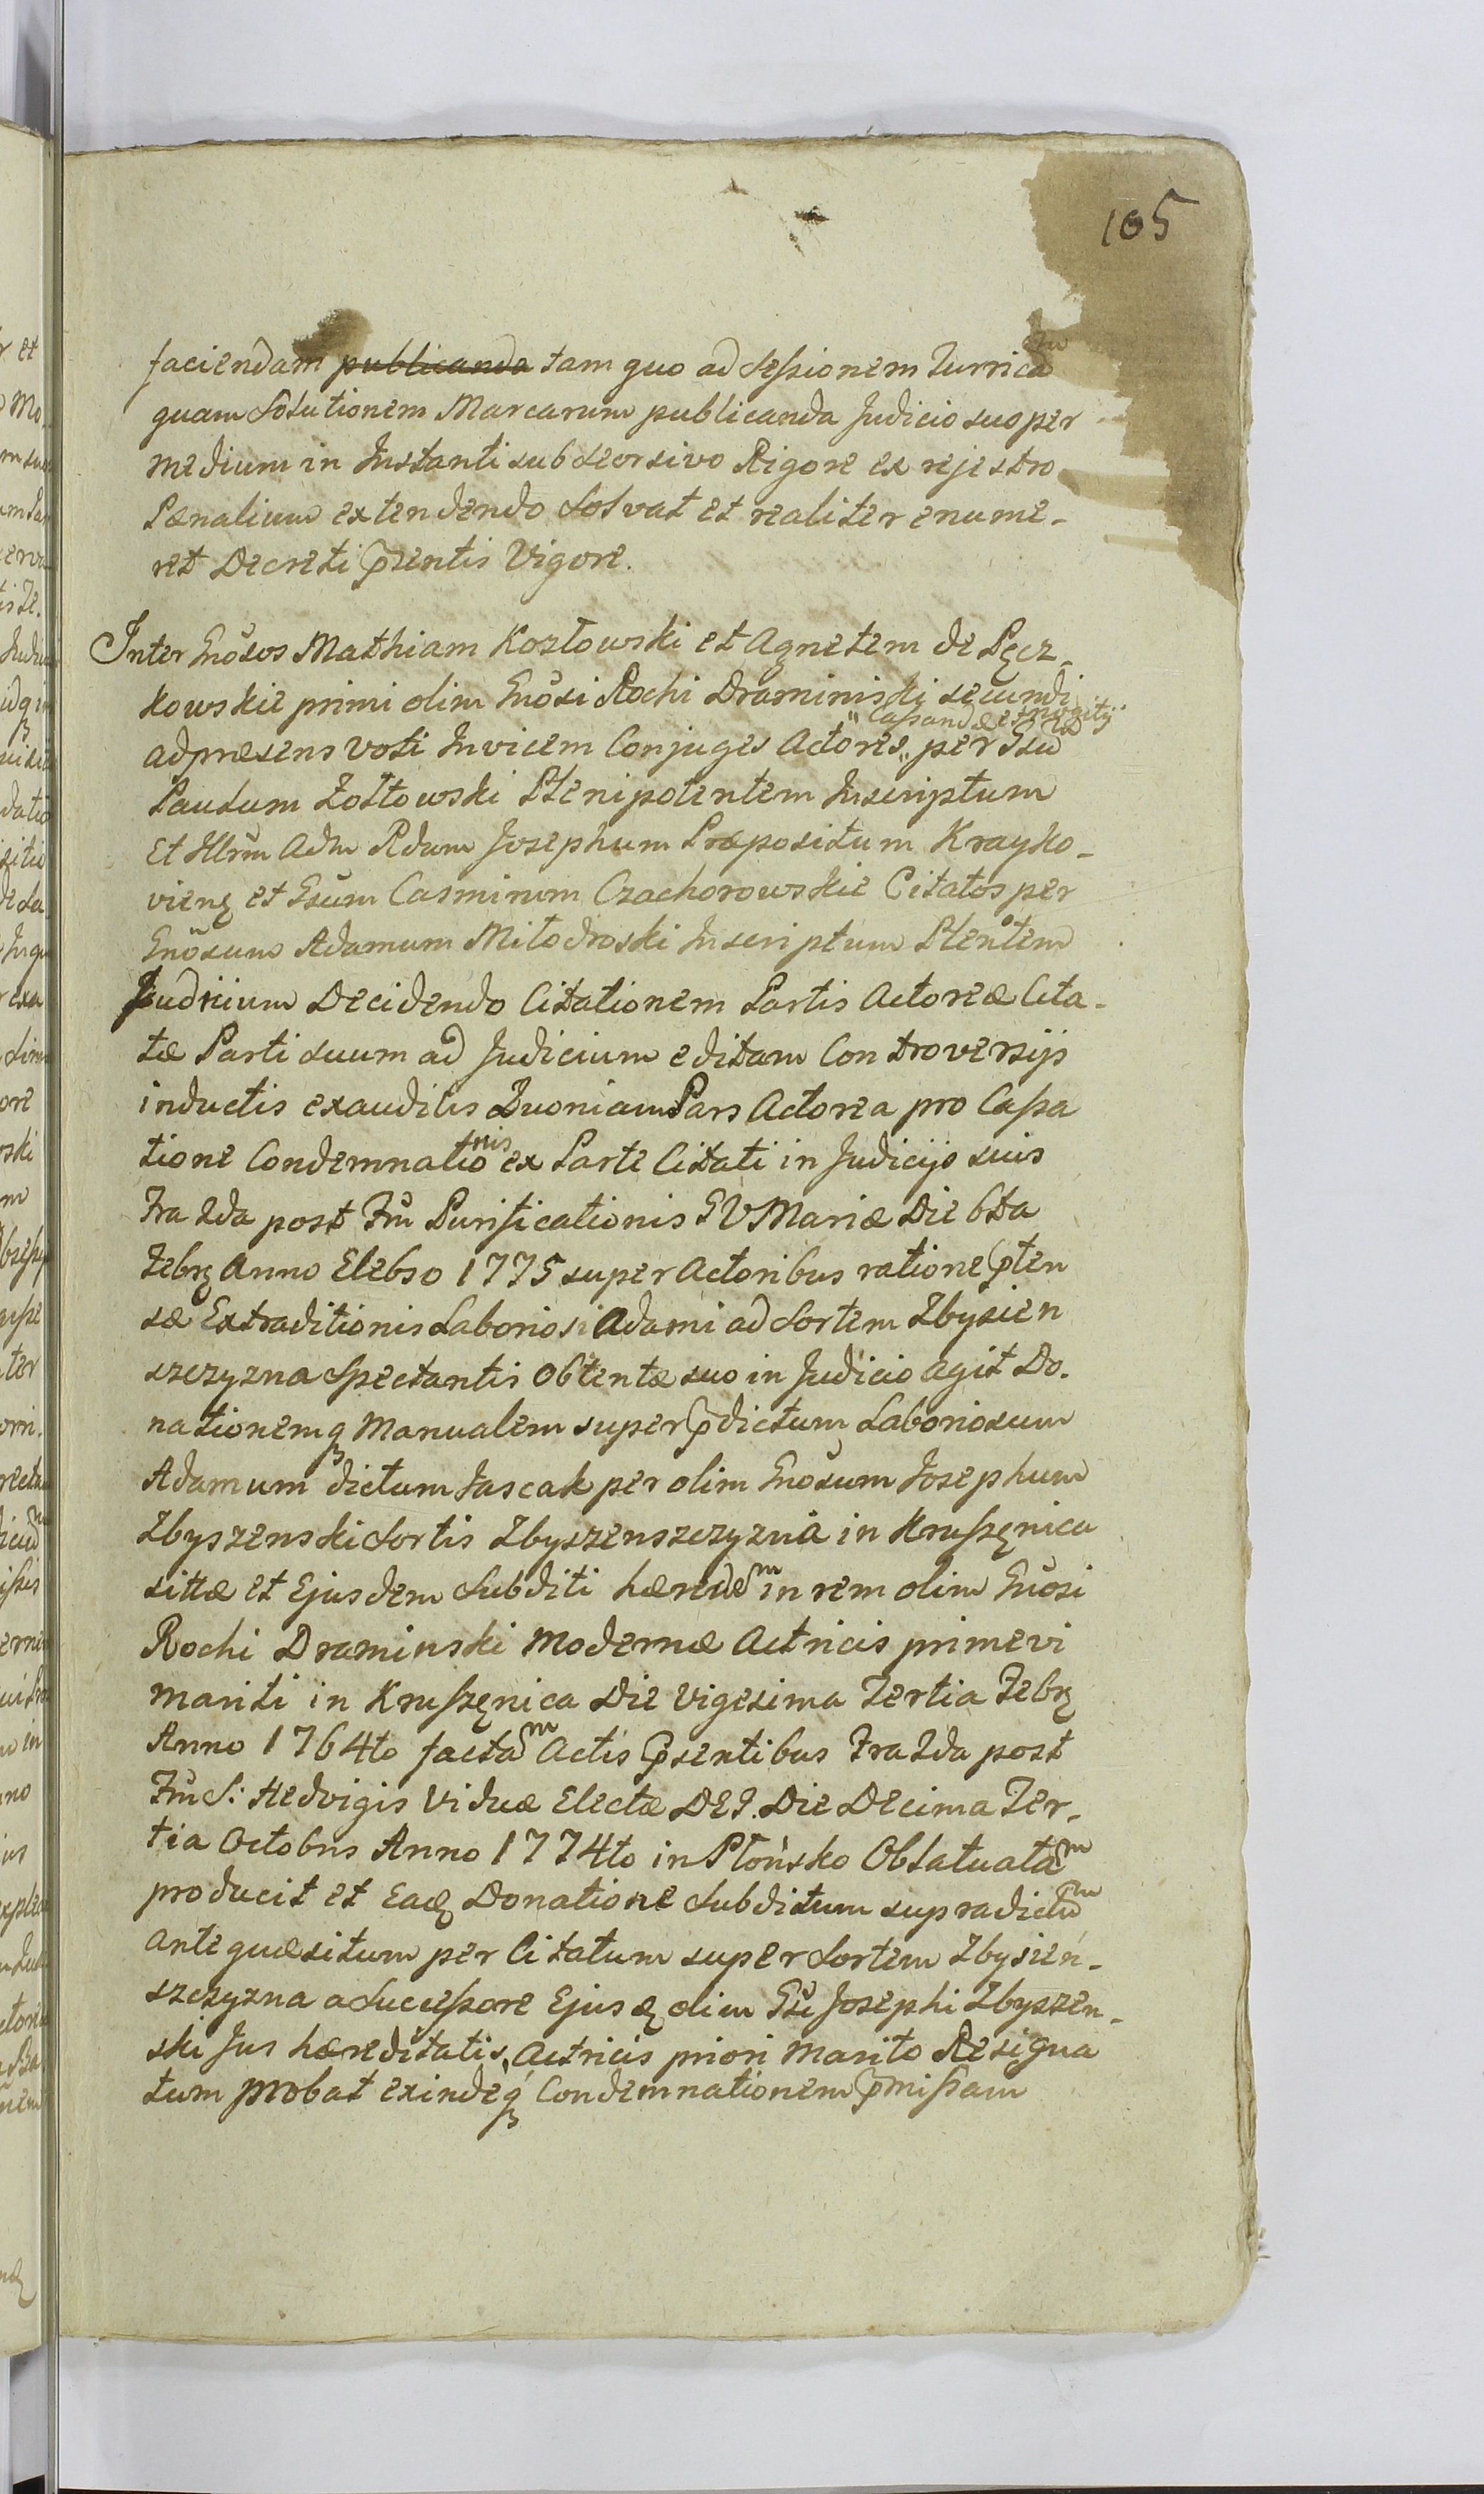 105
faciendam publicanda tam quo ad Sessionem Turricā
quam Solutionem Marcarum publicanda Judicio suo per
medium in Instanti sub seorsivo Rigore ex rejestro
Pænalium extendendo Solvat et realiter enume-
ret Decreti pzentis Vigore.
Inter Gnosos Mathiam Kozłowski et Agnetem de Pęcz-
kowskie primi olim Gnosi Rochi Draminiski secundi
ad præsens voti Invicem Conjuges Actores per Gsū
Paulum Zołtowski Plenipotentem Inscriptum
Et Illrm Adm Rdum Josephum Præpositum Krayko-
vien et Gsum Casmirum Czachorowskie Citatos per
Gnosum Adamum Miłodroski Inscriptum Pleñtem
Judicium Decidendo Citationem Partis Actoreæ Cita-
tæ Parti suum ad Judicium editam Controversijs
inductis exauditis Quoniam Pars Actorea pro Cassa
tione Condemnationis ex Parte Citati in Judicijs suis
Fra 2da post Fm Purificationis BVMariæ Die 6ta
Febr Anno Elebso 1775 super Actoribus ratione pten
sæ Extraditionis Laboriosi Adami ad Sortem Zbysien
szczyzna Spectantis Obtentæ suo in Judicio agit Do-
nationemq Manualem super pdictum Laboriosum
Adamum dictum Jascak per olim Gnosum Josephum
Zbyszenski Sortis Zbyszenszczyzna in Kruszęnica
sittæ et Ejusdem Subditi hæredem in rem olim Gnosi
Rochi Draminski Modernæ Actricis primevi
mariti in Kruszęnica Die Vigesima Tertia Febr
Anno 1764to factam Actis psentibus Fra 2da post
Fm S: Hedvigis Viduæ Electæ DEI. Die Decima Ter-
tia Octobris Anno 1774to in Płońsko Oblatuatam
producit et Eadz Donatione Subditum supradictum
ante quæsitum per Citatum super Sortem Zbysień-
szczyzna a Successore Ejusdz olim Gsi Josephi Zbyszen-
ski Jus hæreditatis, Actricis priori Marito Resigna
tum probat exindeq Condemnationem pmissam